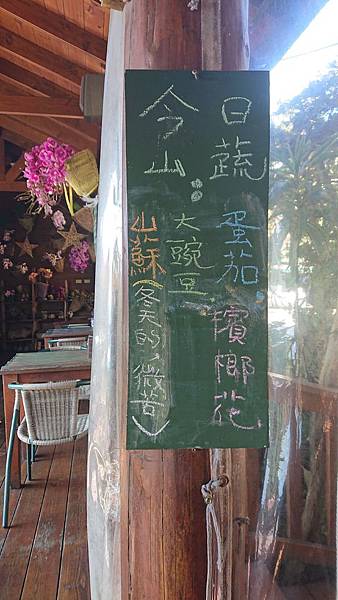 今日
山蔬:
蛋茄,檳榔花
大豌豆
山蘇(冬天的,微苦)